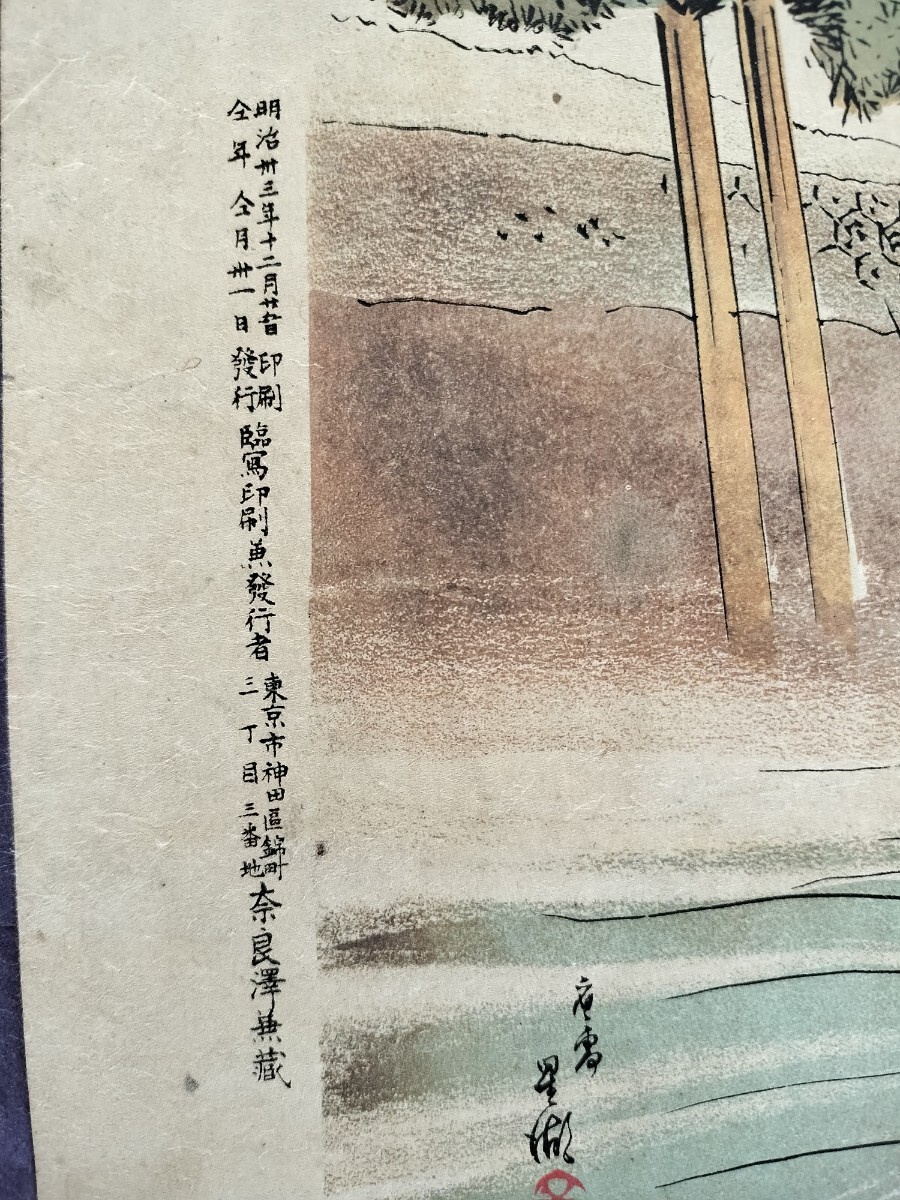 明治卅三年十二月廿五日印刷
仝年仝月卅一日發行
臨寫印刷兼發行者
東京市神田區錦町
三丁目三番地
奈良澤兼藏
應需
星湖